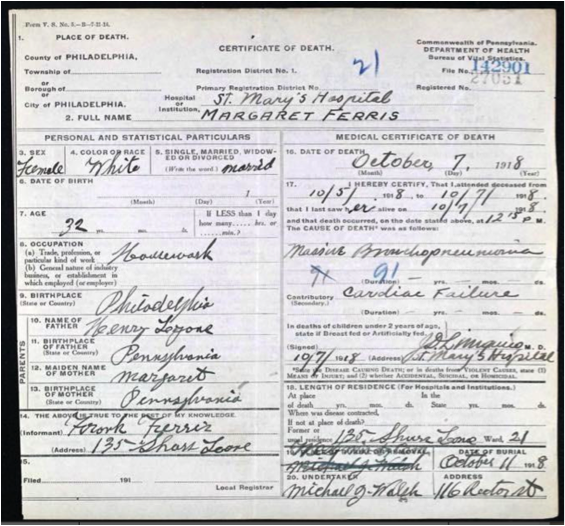 Form V. S. No. 5.
1. PLACE OF DEATH.
CERTIFICATE OF DEATH.
Commonwealth of Pennsylvania.
DEPARTMENT OF HEALTH
Bureau of Vital Statistics.
County of PHILADELPHIA,
Township of
or
Borough of
or
City of PHILADELPHIA.
Registration District No. 1.
21
Primary Registration District No.
File No. 142901
27031
Registered No.
Hospital
or
Institution, St. Mary's Hospital
2. FULL NAME MARGARET FERRIS
PERSONAL AND STATISTICAL PARTICULARS
3. SEX
Female
4. COLOR OR RACE
White
5. SINGLE, MARRIED, WIDOWED OR DIVORCED
(Write the word) married
6. DATE OF BIRTH
1
(Month) (Day) (Year)
7. AGE
32 yrs. mos. ds.
If LESS than 1 day
how many hrs. or
min.?
8. OCCUPATION
(a) Trade, profession, or
particular kind of work
(b) General nature of industry
business, or establishment in
which employed (or employer)
9. BIRTHPLACE
(State or Country) Philadelphia
PARENTS
10. NAME OF
FATHER Henry
11. BIRTHPLACE
OF FATHER
(State or Country) Pennsylvania
12. MAIDEN NAME
OF MOTHER Margaret
13. BIRTHPLACE
OF MOTHER
(State or Country) Pennsylvania
14. THE ABOVE IS TRUE TO THE BEST OF MY KNOWLEDGE
(Informant) Frank Ferris
(Address) 135
15.
Filed 191
Local Registrar
MEDICAL CERTIFICATE OF DEATH
16. DATE OF DEATH
October, 7, 1918
(Month) (Day) (Year)
17. I HEREBY CERTIFY, That I attended deceased from
10/5/ 1918 to 10/7/ 1918.
that I last saw her alive on 10/7/ 1918.
and that death occurred, on the date stated above, at 12 15 P M.
The CAUSE OF DEATH* was as follows:
Massive Bronchopneumonia
91
(Duration) yrs. mos. ds.
Contributory Cardiac Failure
(Secondary.)
(Duration) yrs. mos. ds.
In deaths of children under 2 years of age,
state if Breast fed or Artificially fed.
(Signed) M. D.
10/7/1918 (Address) St. Mary's Hospital
*State the DISEASE CAUSING DEATH; or in deaths from VIOLENT CAUSES, state (1)
MEANS OF INJURY; and (2) whether ACCIDENTAL, SUICIDAL, OR HOMICIDAL.
18. LENGTH OF RESIDENCE (For Hospitals and Institutions.)
At place In the
of death yrs. mos. ds. State yrs. mos. ds.
Where was disease contracted,
if not at place of death?
Former or
usual residence 135 Ward. 21
DATE OF BURIAL
October 11 1918
Michael J. Walsh
20. UNDERTAKER
Michael J. Walsh
ADDRESS
116 Rector st